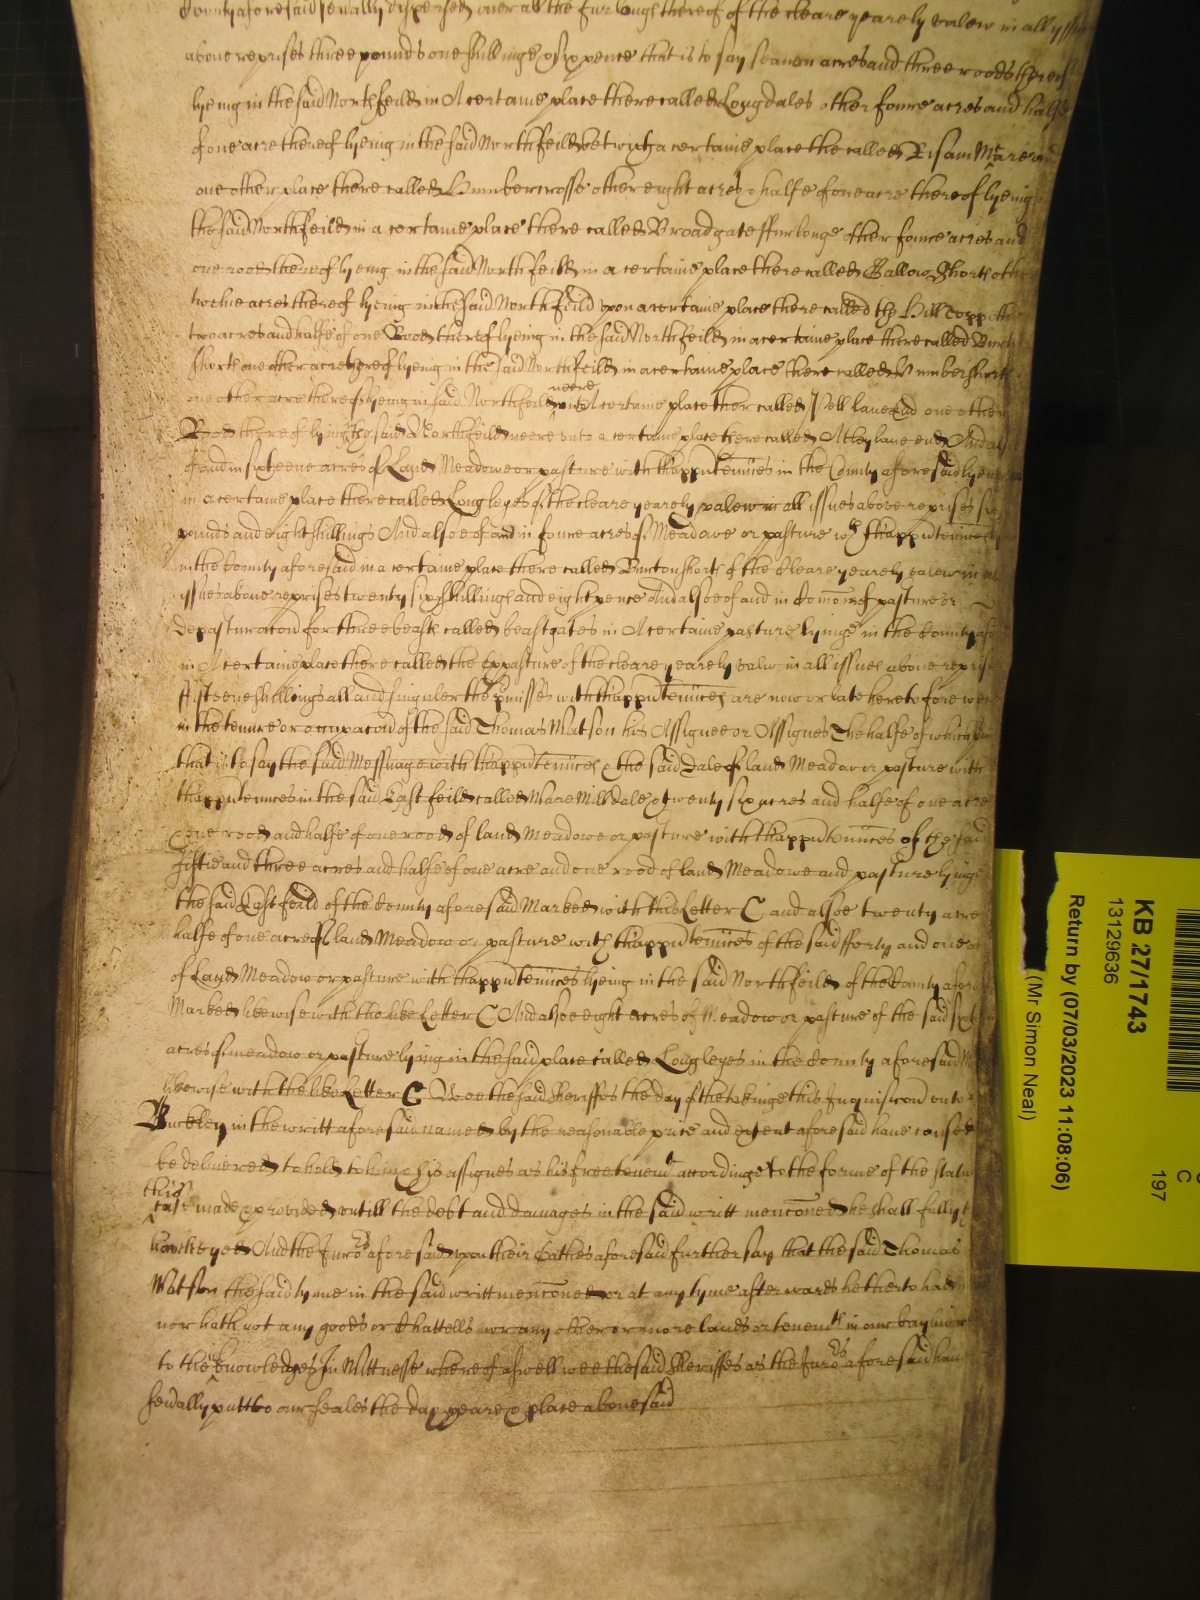 County aforesaid sevally dispersed over all the furlongs thereof of the cleare yearely valew in all yssu
above reprises three pounds one shillinge & six pence that is to say seaven acres and three roods thereof
lyeing in the said Northfeild in A certaine place there called Longdales other foure acres and halfe
of one acre thereof lyeing in the said Northfeild betwixt a certaine place the called Risam Mare and
one other place there called Humbercrosse other eight acres & halfe of one acre thereof lyeing
the said Northfeild in a certaine place there called Broadgate ffurlonge other foure acres and
one rood thereof lyeing in the said Northfeild in a certaine place there called Gallow Short oth
twelve acres thereof lyeing in the said Northfeild upon a certaine place there called the Hill Topp othe
two acres and halfe of one Rood thereof lyeing in the said Northfeild in a certaine place there called
Short one other acre thereof lyeing in the said Northfeild in a certaine place there called Humbershort
one other acre thereof lyeing in said Northfeild neere unto A certaine place ther called Well lane end one other
Rood thereof lying in the said Northfeild neere unto a certaine place there called Atby lane end And al
of and in sixteene acres of Land Meadowe or pasture with thapputennces in the County aforesaid lyen
in a certaine place there called Longleyes of the cleare yearely valew in all issues above reprises six
pounds and eight shillings And alsoe of and in foure acres of Meadowe or pasture wth thapputennces
in the County aforesaid in a certaine place there called Burton short of the Cleare yearely valew in al
issues above reprises twenty six shillings and eight pence And alsoe of and in Comon of pasture or
depasturacon for three beasts called beastgates in A certaine pasture lyinge in the County afo
in A certaine place there called the Oxpasture of the cleare yearely valew in all issues above repris
fifteene shillings all and singuler the pmisses with thapputennces are now or late heretofore wer
in the tenure or occupacon of the said Thomas Watson his Assignee or Assignes The halfe of which
that is to say the said Messuage with thapputennces & the said dale of land Meadow or pasture with
thapputennces in the said East feild called Mare Milldale & twenty six acres and halfe of one acre
& one rood and halfe of one rood of land Meadowe or pasture with thapputennces of the said
fiftie and three acres and halfe of one acre and one rood of land Meadowe and pasture lying
the said East feild of the County aforesaid Marked with this Letter C and alsoe twenty acre
halfe of one acre of land Meadow or pasture with thapputennces of the said fforty and one a
of Land Meadow or pasture with thapputennces lyeing in the said Northfeild of the County afore
Marked likewise with the like Letter C And alsoe eight acres of Meadow or pasture of the said six
acres of meadow or pasture lying in the said place called Longleyes in the County aforesaid M
likewise with the like Letter C Wee the said Sheriffes the day of the takinge this Inquisicon unto
Buckley in the writt aforesaid named by the reasonable price and extent aforesaid have caused
be delivered to hold to him & his assignes as his free tenemt accordinge to the forme of the statu
this case made & provided untill the debt and damages in the said writt menconed he shall fully
have levyed And the Juros aforesaid upon their Oathes aforesaid further say that the said Thomas
Watson the said tyme in the said writt menconed or at any tyme afterwards hetherto had
nor hath not any goods or Chattells nor any other or more lands or tenemts in our bayliwi
to their knowledges In Wittnesse whereof aswell wee the said Sheriffes as the Juros aforesaid have
sevally putt to our seales the day yeare & place abovesaid
KB 27/1743
13129636
Return by (07/03/2023 11:08:06)
(Mr Simon Neal)
C
197